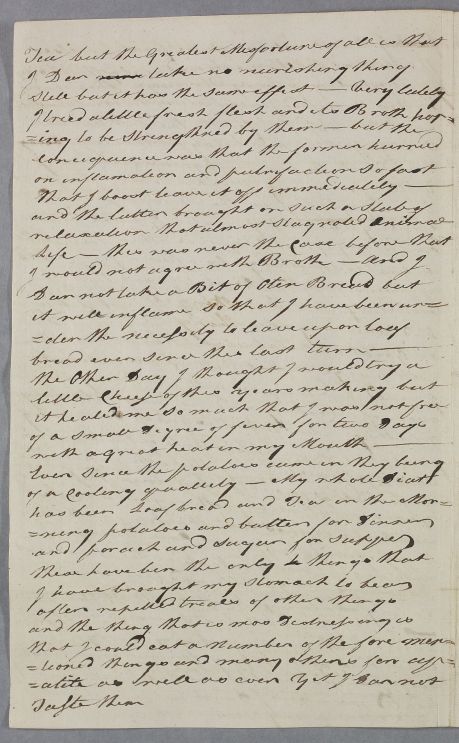 Tea but the Greatest Misfortune of all is that
I Dear take no nourishing thing
still but it has the same effect — Very lately
I tried a little fresh flesh and its Broth hop-
=ing to be strengthned by them — but the
consequence was that the former hurried
on inflamation and putrifaction so fast
that I boost leave it off immediately —
and the latter brought on such a State of
relaxation that almost stagnated animal
life — this was never the Case before that
I would not agree with Broth — and I
Dar not take a Bit of Oten Bread but
it will inflame so that I have been un-
=der the necessity to leave upon loaf
bread ever since the last turn —
the Other Day I thought I would try a
little Cheese of this years making but
it heated me so much that I was not free
of a small degree of fever for two Days
with a great heat in my Mouth —
Ever since the potatoes came in they being
of a Cooling quallety — My whole Diat
has been loaf bread and Tea in the Mor-
=ning potatoes and butter for Dinner
and porach and sugar for supper
these have ben the only 4 things that
I have brought my stomach to bear
after repetted treals of other things
and the thing that is mos Distressing is
that I could eat a number of the fore men-
=tioned things and many others for app-
=atite as well as ever yet I Dar not
Taste them